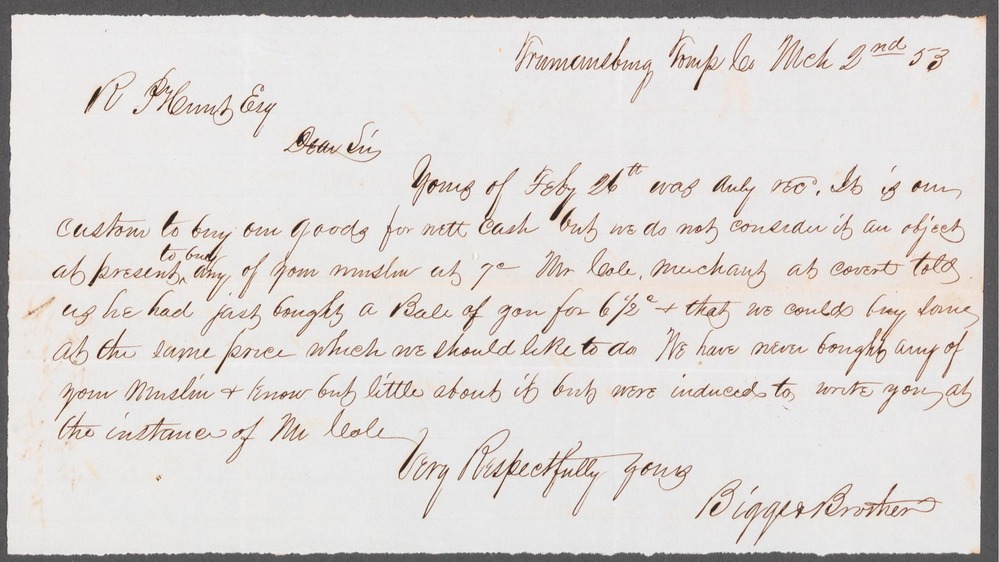 Trumansburg Tomp Co Mch 2nd 53
R P Hunt Esq
Dear Sir
Yours of Feby 26th was duly recd. It is our
custom to buy our goods for nett cash but we do not consider it an object
at present to buy any of your muslin at 7c Mr Cole, merchant at covert told
us he had just bought a Bale of you for 6 1/2c & that we could buy some
at the same price which we should like to do We have never bought any of
your Muslin & know but little about it but were induced to write you at
the instance of Mr Cole
Very Respectfully yours
Biggs & Brother